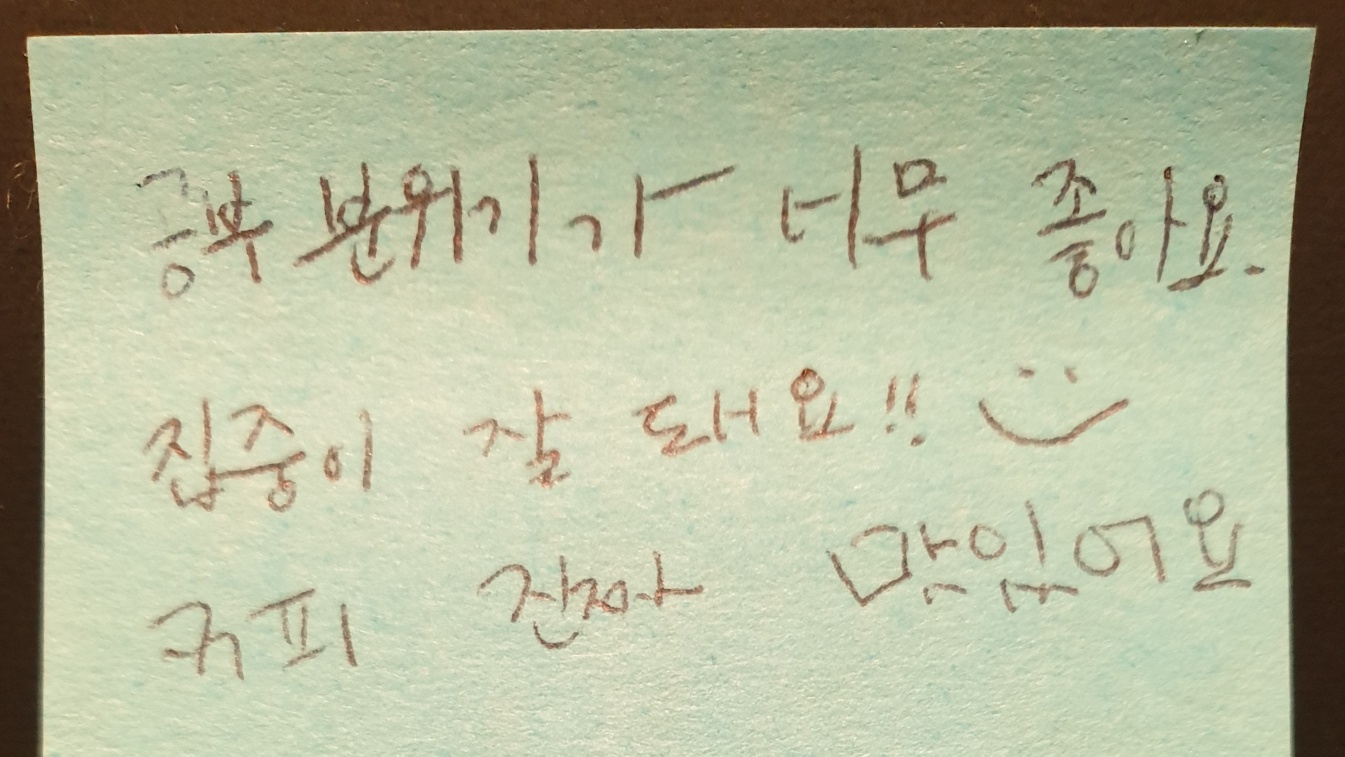 공부 분위기가 너무 좋아요.
집중이 잘 돼요!! :)
커피 진짜 맛있어요